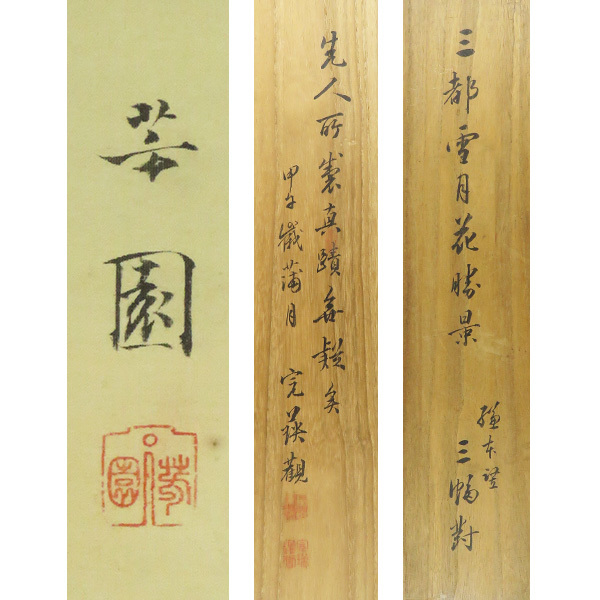 三都雪月花勝景
絹本
三幅對
先人所製真蹟無疑矣
甲午歳蒲月 完瑛觀
芳園
芳園